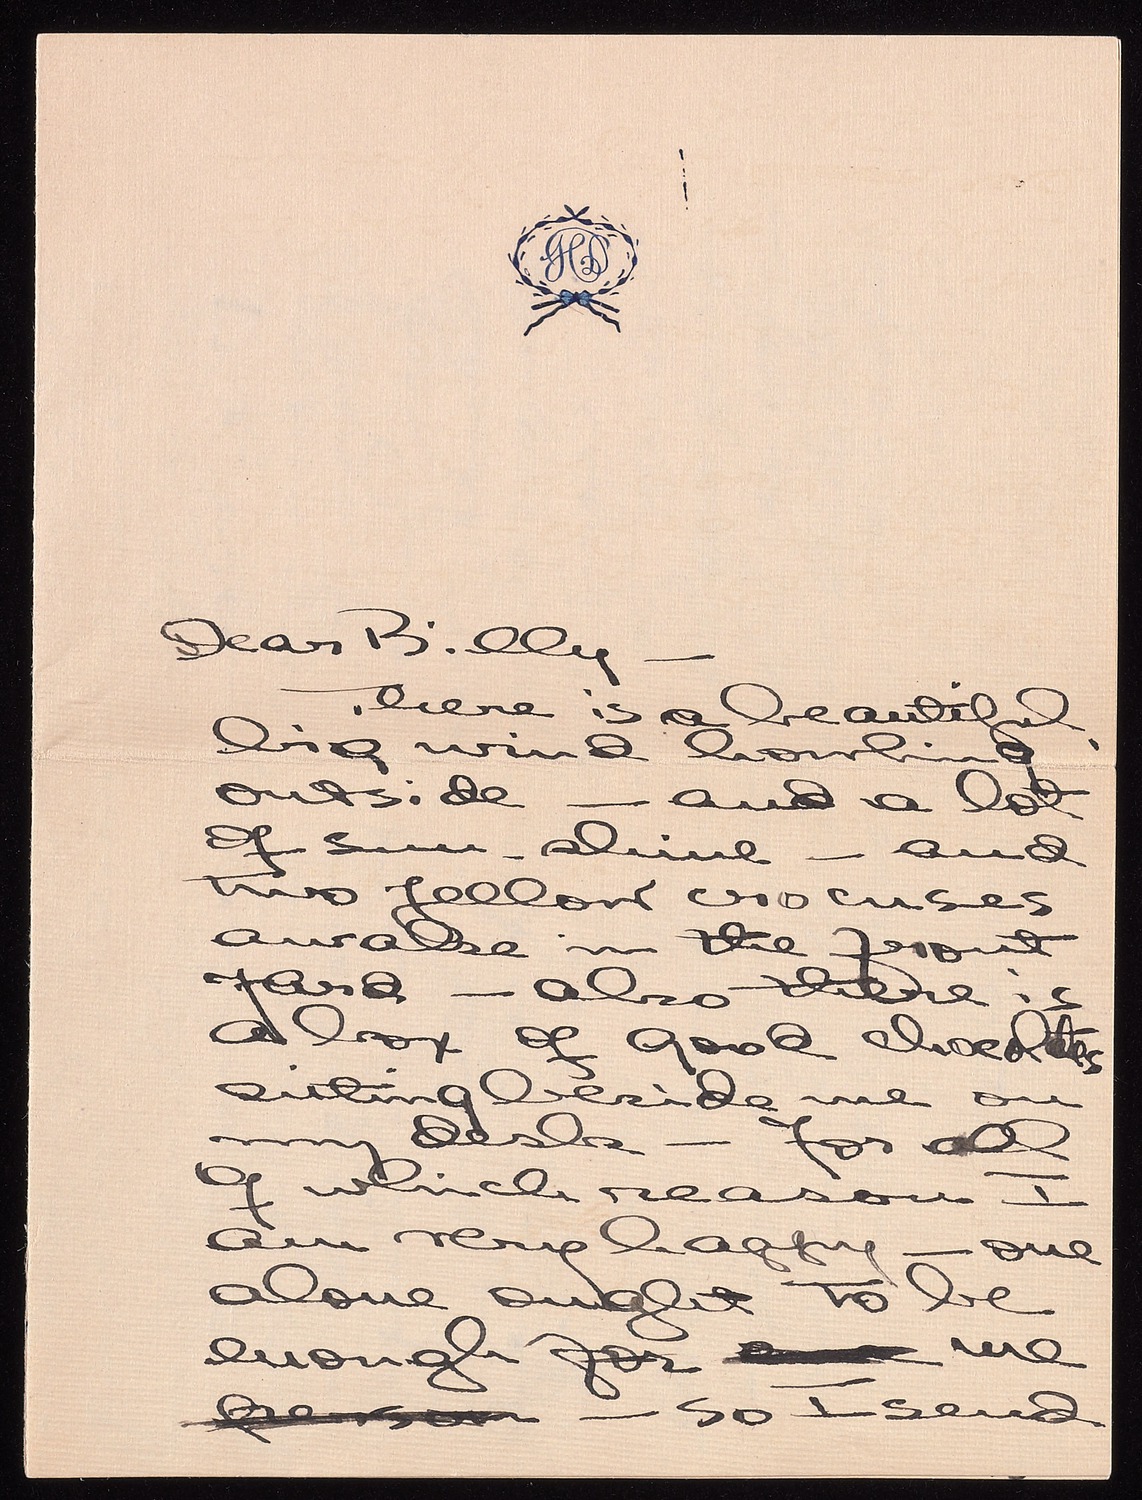 GHD
Dear Billy —
There is a beautiful
big wind howling
outside — and a lot
of sun-shine — and
two yellow crocuses
awake in the front
yard — also there is
a box of good chocolates
sitting beside me on
my desk — for all
of which reason I
am very happy — one
alone ought to be
enough for me
person — so I send